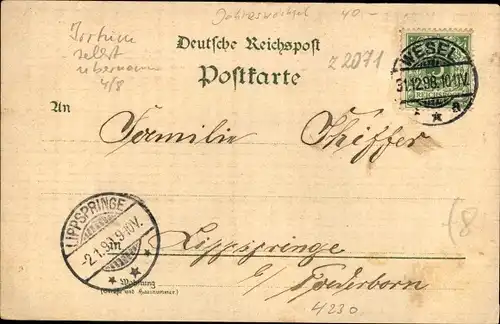 Jahreswechsel 40.-
selbst
4/8
Deutsche Reichspost
z 2071
Postkarte
WESEL
31.12.98.10-11V.
* a
An
Familie
LIPPSPRINGE
-2.1.9 9-10V.
in
Lippspringe
Wohnung
(Straße und Hausnummer)
b/ Paderborn
4230
(8